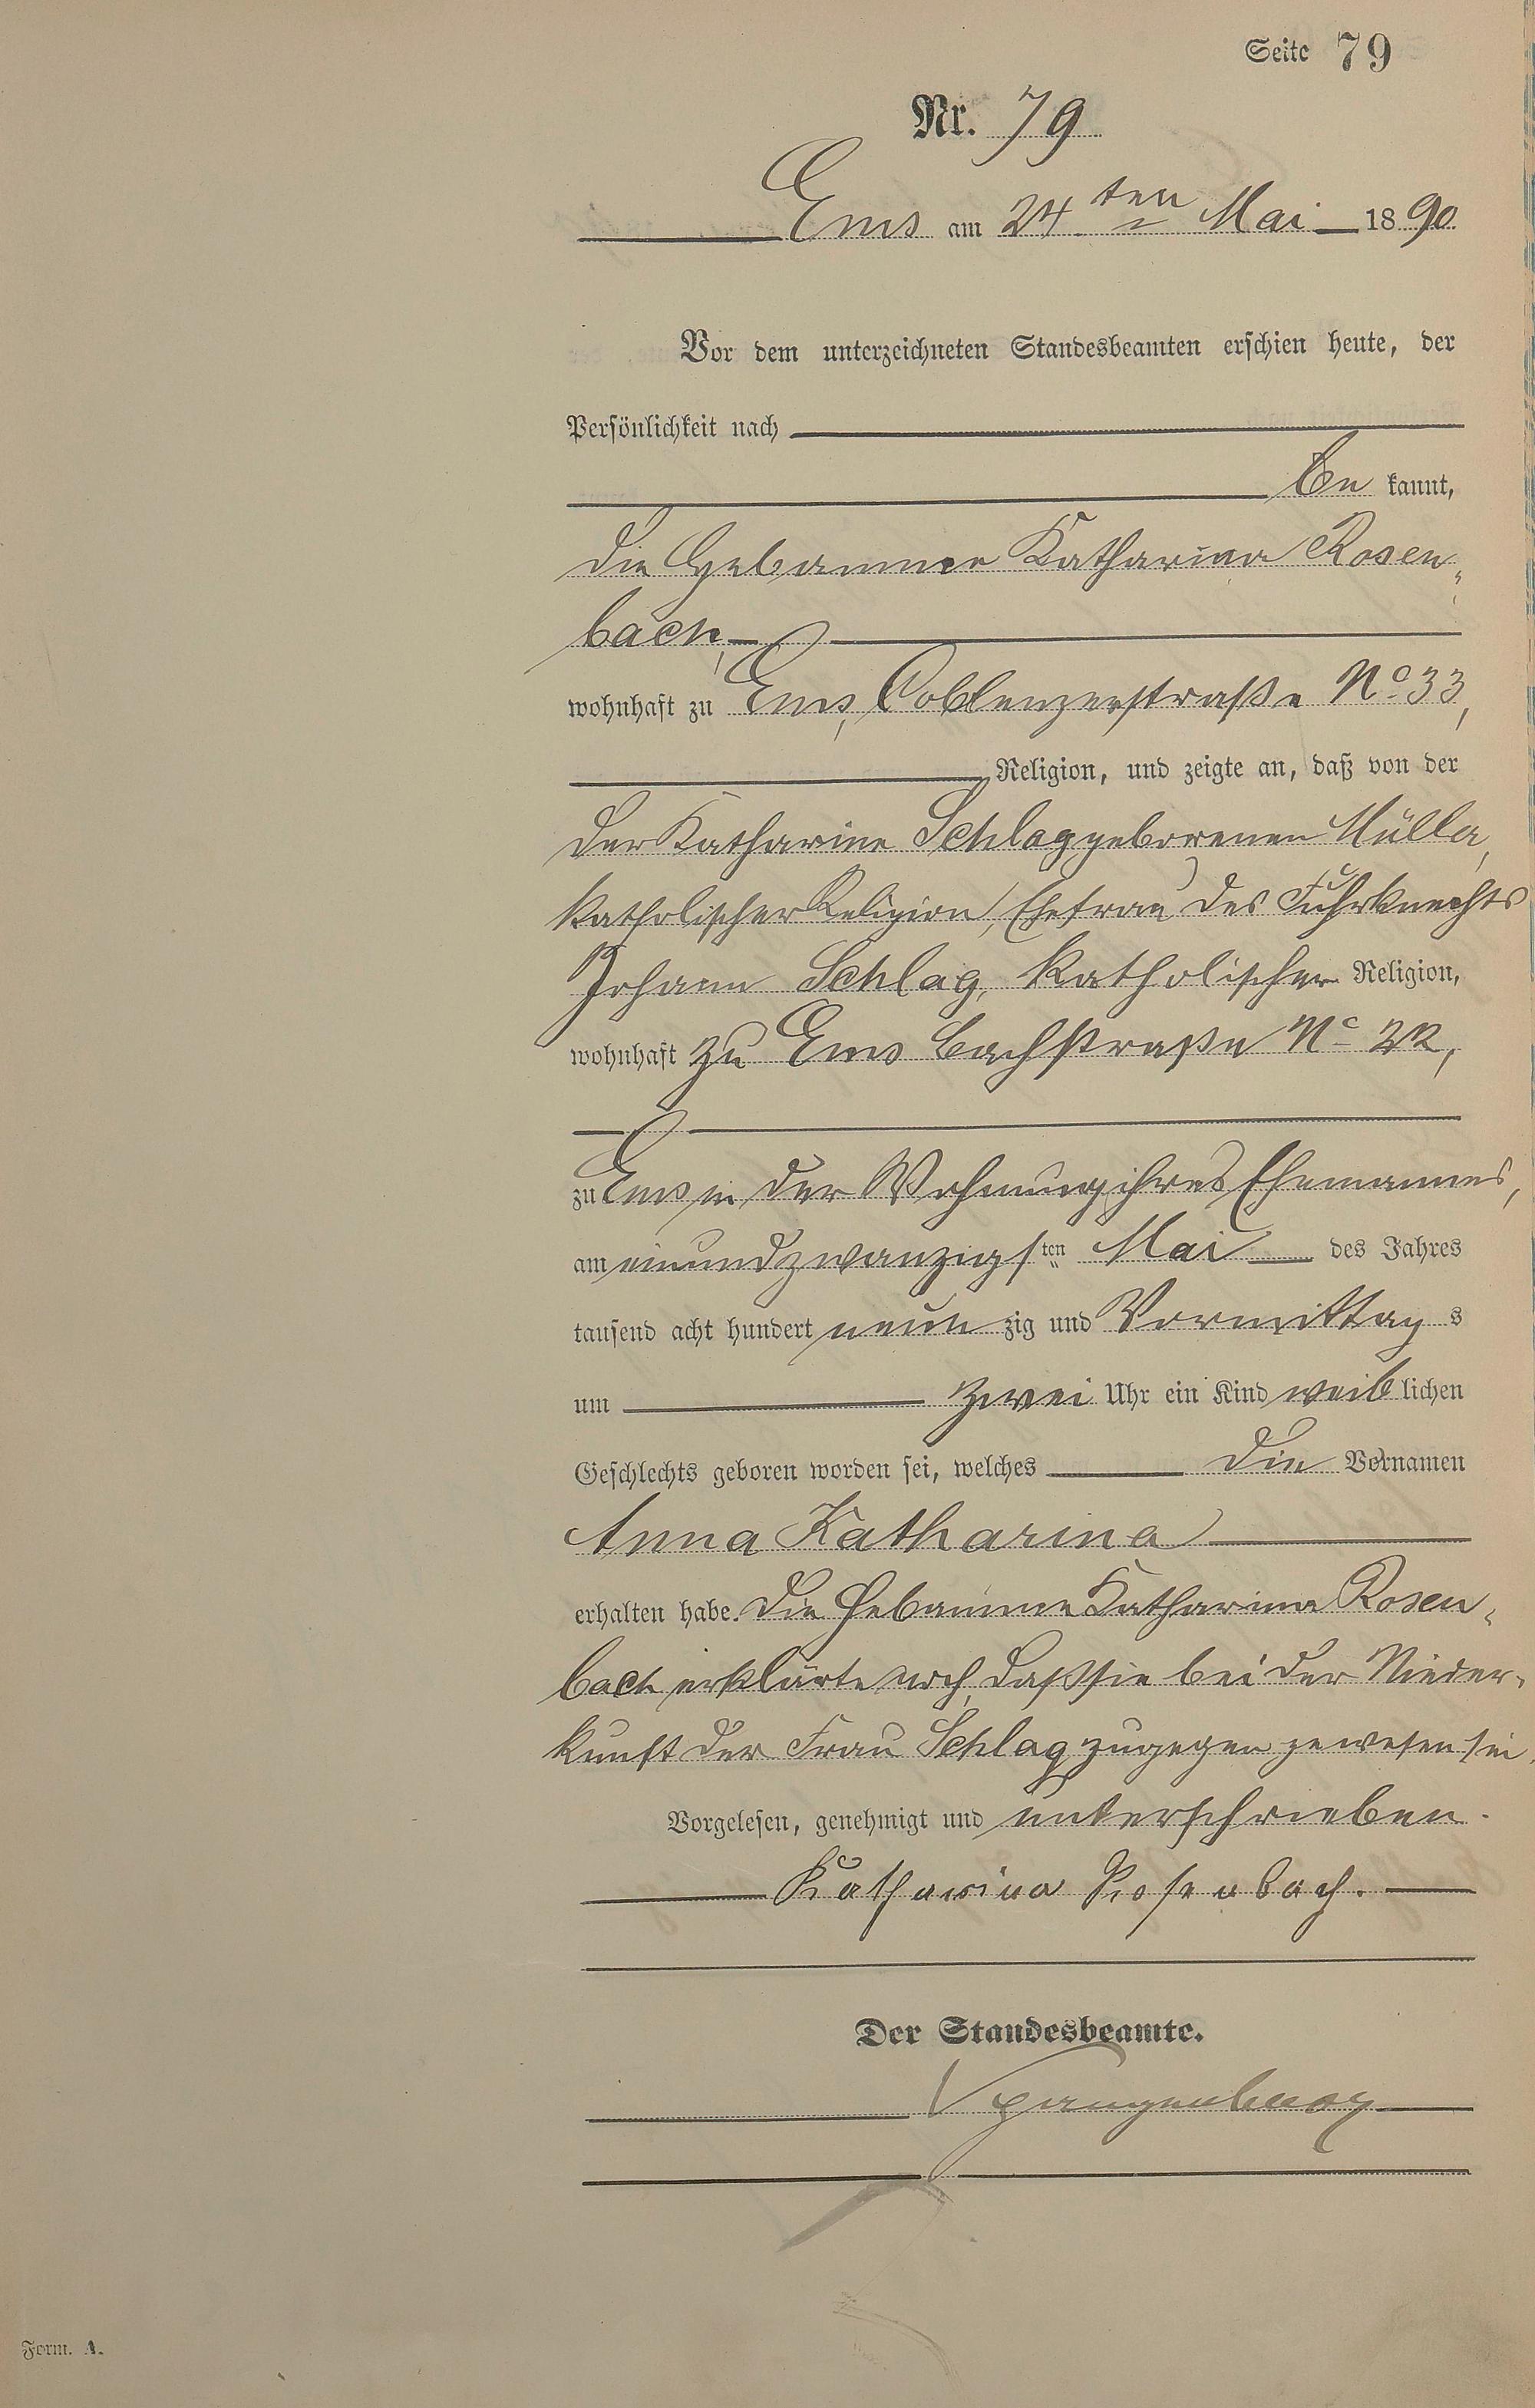 Seite 79
Nr. 79
Ems am 24ten Mai 1890
Vor dem unterzeichneten Standesbeamten erschien heute, der
Persönlichkeit nach
be kannt,
die Hebamme Katharina Rosen-
bach,
wohnhaft zu Ems, Coblenzerstraße No 33,
Religion, und zeigte an, daß von der
der Katharine Schlag geborenen Müller,
katholischer Religion, Ehefrau des Fuhrknechts
Johann Schlag, katholischer Religion,
wohnhaft zu Ems Bachstraße No 22,
zu Ems in der Wohnung ihres Ehemannes,
am einundzwanzigsten Mai des Jahres
tausend acht hundert neun zig und Vormittag s
um zwei Uhr ein Kind weib lichen
Geschlechts geboren worden sei, welches die Vornamen
Anna Katharina
erhalten habe. Die Hebamme Katharina Rosen-
bach erklärte noch, daß sie bei der Nieder-
kunft der Frau Schlag zugegen gewesen sei.
Vorgelesen, genehmigt und unterschrieben.
Katharina Rosenbach.
Der Standesbeamte.
Form. A.